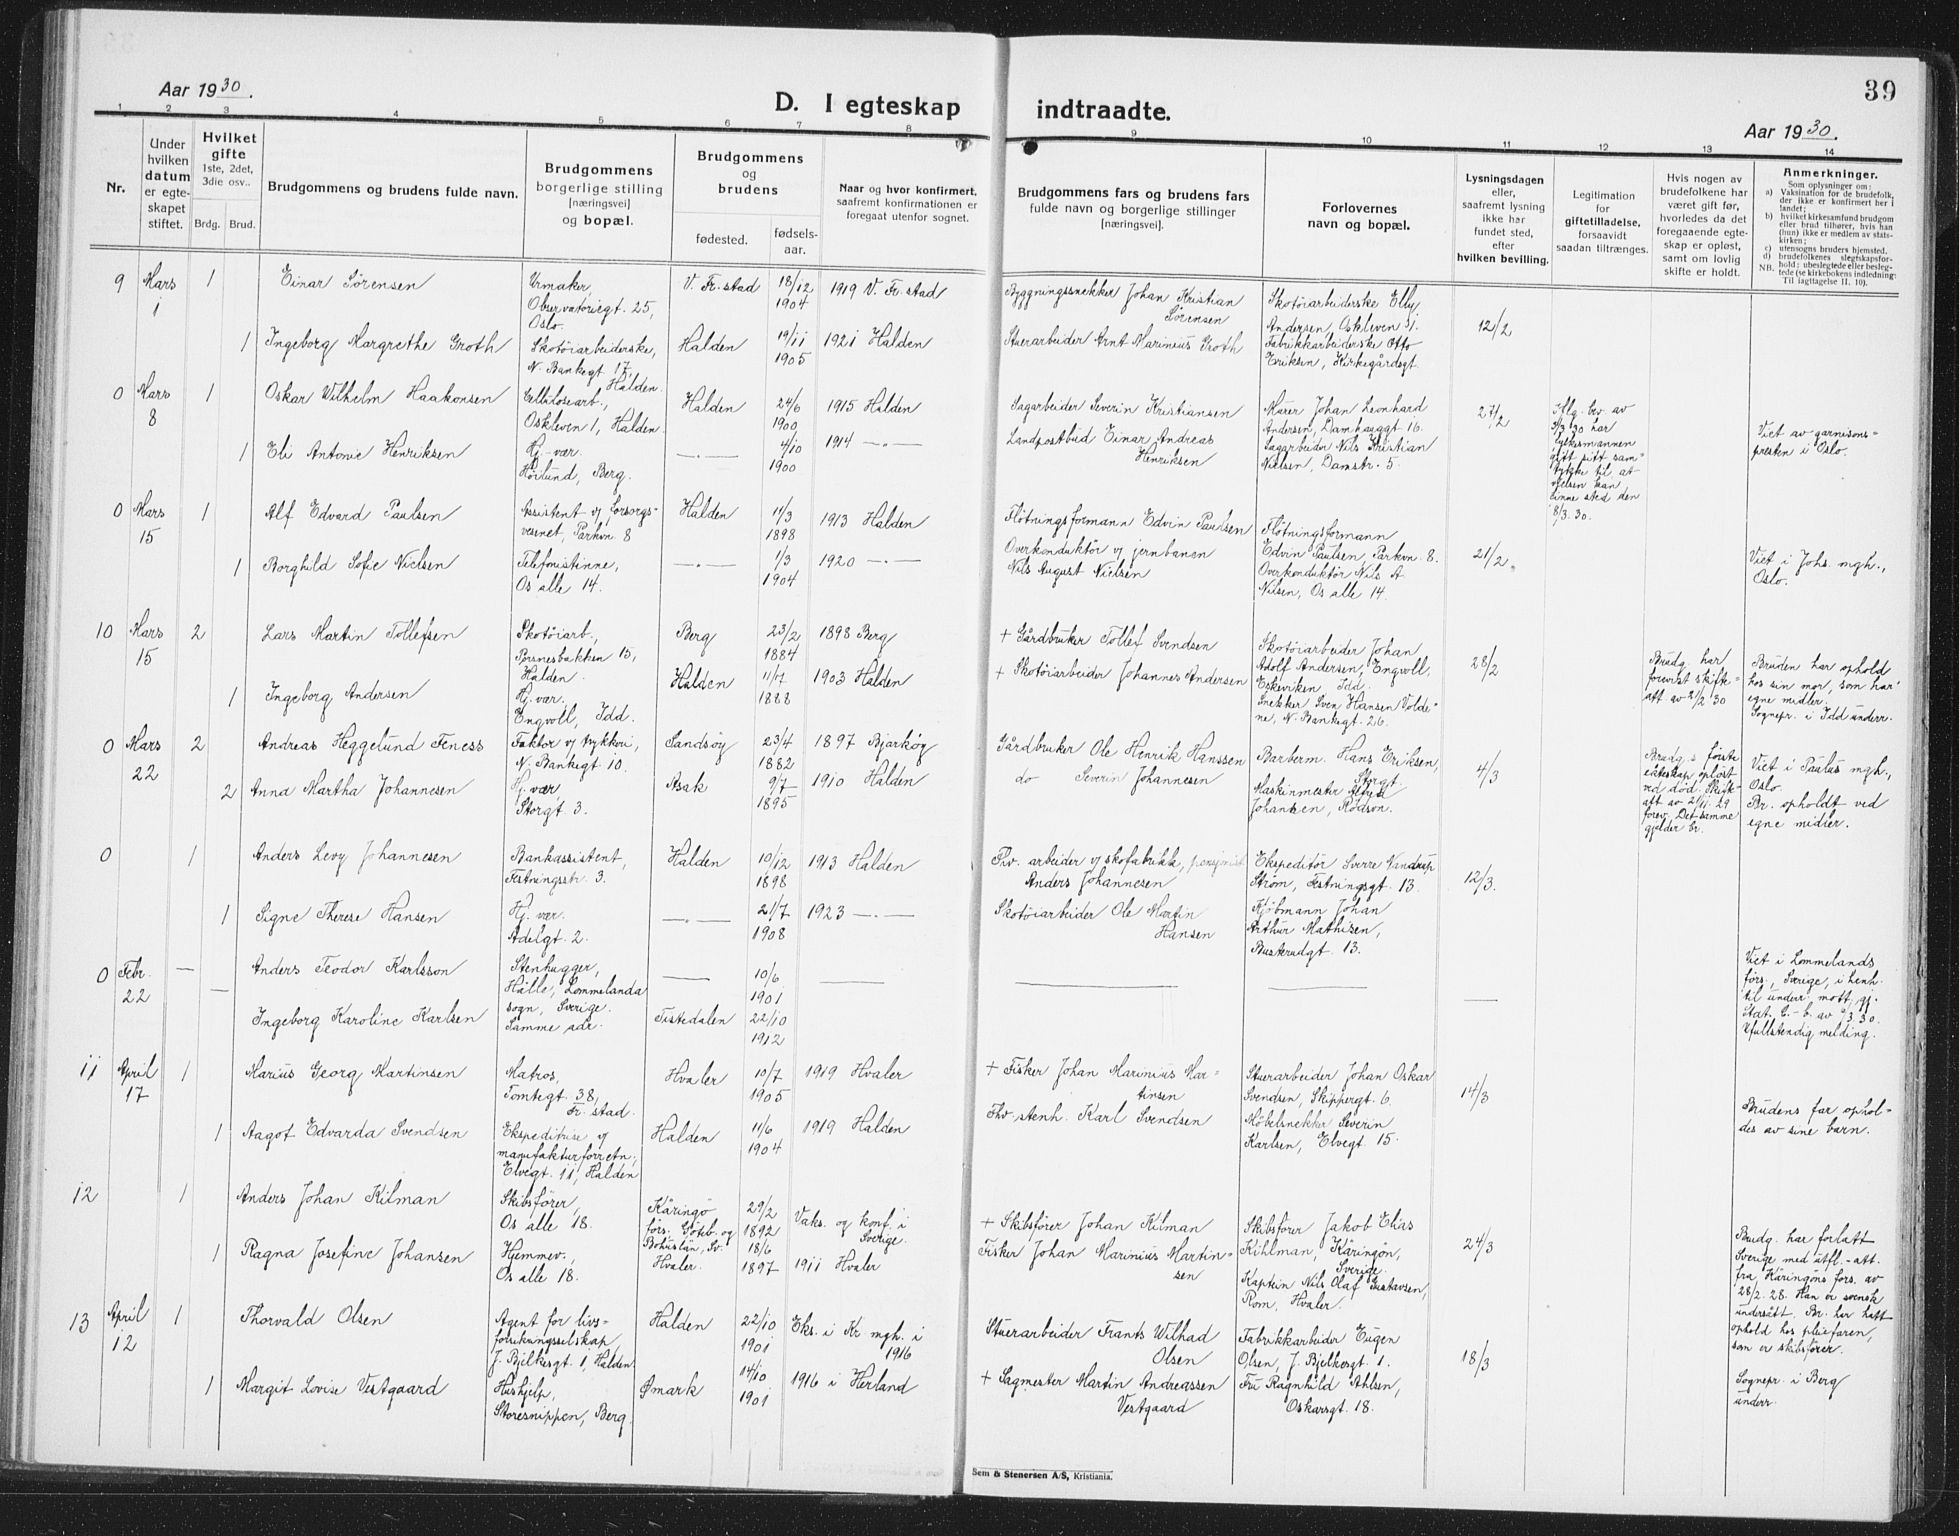 39
Aar 1930.
D. I egteskap indtraadte.
Aar 1930.
1 2 3 4 5 6 7 8 9 10 11 12 13 14
Nr.
Under hvilken datum er egteskapet stiftet.
Hvilket gifte
1ste, 2det, 3die osv..
Brdg. Brud.
Brudgommens og brudens fulde navn.
Brudgommens borgerlige stilling [næringsvei] og bopæl.
Brudgommens og brudens
fødested.
fødselsaar.
Naar og hvor konfirmert, saafremt konfirmationen er foregaat utenfor sognet.
Brudgommens fars og brudens fars fulde navn og borgerlige stillinger [næringsvei].
Forlovernes navn og bopæl.
Lysningsdagen eller, saafremt lysning ikke har fundet sted, efter hvilken bevilling.
Legitimation for giftetilladelse, forsaavidt saadan tiltrænges.
Hvis nogen av brudefolkene har været gift før, hvorledes da det foregaaende egteskap er opløst, samt om lovlig skifte er holdt.
Anmerkninger.
Som oplysninger om:
a) Vaksination for de brudefolk, der ikke er konfirmert her i landet;
b) hvilket kirkesamfund brudgom eller brud tilhører, hvis han (hun) ikke er medlem av statskirken;
c) utensogns bruders hjemsted.
d) brudefolkenes slegtskapsforhold; ubeslegtede eller beslegtede (se kirkebokens indledning:
NB. Til iagttagelse II. 10).
9 Mars 1 1 Einar Sørensen
Urmaker, Observatoriegt. 25, Oslo.
V. Fr.stad 18/12 1904 1919 V. Fr.stad
Byggningssnekker Johan Kristian Sørensen
Skotøiarbeiderske Elly Andersen, Oskleven 31.
12/2
1 Ingeborg Margrethe Groth
Skotøiarbeiderske, N. Bankegt 17, Halden.
Halden 19/11 1905 1921 Halden
Stuerarbeider Arnt Marinius Groth
Fabrikkarbeiderske Otto Eriksen, Kirkegårdsgt.
0 Mars 8 1 Oskar Wilhelm Haakonsen
Cellulosearb., Oskleven 1, Halden.
Halden 24/6 1900 1915 Halden
Sagarbeider Severin Kristiansen
Murer Johan Leonhard Andersen, Damhauggt 16.
27/2
1 Eli Antonie Henriksen
Hj.-vær. Høilund, Berg.
—.— 4/10 1900 1914 —.—
Landpostbud Einar Andreas Henriksen
Sagarbeider Nils Kristian Nielsen, Damstr. 5.
gitt sitt samtykke til at vielsen kan finne sted den 8/3.30.
Viet av garnisonspresten i Oslo.
0 Mars 15 1 Alf Edvard Paulsen
Assistent v/ forsorgsvesenet, Parkvn. 8
Halden 11/3 1898 1913 Halden
Fløtningsformann Edvin Paulsen
Fløtningsformann Edvin Paulsen, Parkvn. 8.
21/2.
1 Borghild Sofie Nielsen
Telefonistinne, Os alle 14.
—.— 1/3 1904 1920 —.—
Overkonduktør v/ jernbanen Nils August Nielsen
Overkonduktør Nils A Nilsen, Os alle 14.
Viet i Johs. mgh., Oslo.
10 Mars 15 2 Lars Martin Tollefsen
Skotøiarb., Porsnesbakken 15, Halden.
Berg 23/2 1884 1898 Berg
+ Gårdbruker Tollef Svendsen
Skotøiarbeider Johan Adolf Andersen, Engvoll, Eskeviken, Idd.
28/2
Brudg. har forevist skifteatt av 21/2 30
1 Ingeborg Andersen
Hj. vær. Engvoll, Idd.
Halden 11/7 1888 1903 Halden
+ Skotøiarbeider Johannes Andersen
Snekker Sven Hansen Voldene, N. Bankegt. 26.
Bruden har ophold hos sin mor, som har egne midler. Sognepr. i Idd underr.
0 Mars 22 2 Andreas Heggelund Feness
Faktor v/ trykkeri, N. Bankegt 10.
Sandsøy 23/4 1882 1897 Bjarkøy
Gårdbruker Ole Henrik Hanssen
Barberm. Hans Eriksen, Storgt.
4/3
2 Anna Martha Johannesen
Hj. vær Storgt 3.
Asak 9/7 1895 1910 Halden
do Severin Johannesen
Maskinmester Johansen, Rødson.
Brudg.s første ekteskap opløst ved død. Skifteatt av 2/11.29 forev. Det samme gjelder br.
Viet i Paulus mgh., Oslo. Br. opholdt ved egne midler.
0 1 Anders Levy Johannesen
Bankassistent, Festningsstr. 3.
Halden 10/12 1898 1913 Halden
Fhv. arbeider v/ skofabrikk, pensjonist Anders Johannesen
Ekspeditør Sverre Vindrup Strøm, Festningsgt. 13.
12/3.
1 Signe Therese Hansen
Hj. vær. Adelgt. 2.
—.— 21/7 1908 1923 —.—
Skotøiarbeider Ole Martin Hansen
Kjøbmann Johan Arthur Mathisen, Busterudgt. 13.
0 Febr. 22 — Anders Teodor Karlsson
Stenhugger, Hälle, Lommelanda sogn, Sverige.
— 10/6 1901
— Ingeborg Karoline Karlsen
Samme adr.
Tistedalen 22/10 1912
Viet i Lommelands førs., Sverige, i henh. til underr. mott. gj. Stat. C.-b. av 9/3 30. Ufullstendig melding.
11 April 17 1 Marius Georg Martinsen
Matros, Tomtegt. 38, Fr.stad.
Hvaler 10/7 1905 1919 Hvaler
+ Fisker Johan Marinius Martinsen
Stuerarbeider Johan Oskar Svendsen, Skippergt. 6.
14/3
1 Aagot Edvarda Svendsen
Ekspeditrise v/ manufakturforretn., Elvegt. 11, Halden
Halden 11/6 1904 1919 Halden
Fhv. stenh. Karl Svendsen
Møbelsnekker Severin Karlsen, Elvegt 15.
Brudens far opholdes av sine barn.
12 1 Anders Johan Kilman
Skibsfører, Os alle 18.
Käringö førs. Göteb. og Bohuslän, Sv. 29/2 1892
Vaks. og konf. i Sverige.
+ Skibsfører Johan Kilman
Skibsfører Jakob Elias Kihlman, Käringön, Sverige.
24/3
1 Ragna Josefine Johansen
Hjemmev., Os alle 18.
Hvaler. 18/6 1897 1911 Hvaler
Fisker Johan Marinius Martinsen
Kaptein Nils Olaf Gustavsen, Rom, Hvaler.
Brudg. har forlatt Sverige med utfl.-att. fra Käringöns førs. av 28/2.28. Han er svensk undersått. Br. har hatt ophold hos pleiefaren, som er skibsfører.
13 April 12 1 Thorvald Olsen
Agent for livsforsikringsselskap, J. Bjelkesgt. 1, Halden.
Halden 22/10 1901
Eks. i Kr. mgh. i 1916
Stuerarbeider Frants Wilhad Olsen
Fabrikkarbeider Eugen Olsen, J. Bjelkesgt. 1.
18/3
1 Margit Lovise Vestgaard
Hushjelp, Storesnippen, Berg.
Ømark 14/10 1901 1916 i Herland
+ Sagmester Martin Andreassen Vestgaard
Fru Ragnhild Ahlsen, Oskarsgt. 18.
Sognepr. i Berg underr.
Sem & Stenersen A/S, Kristiania.